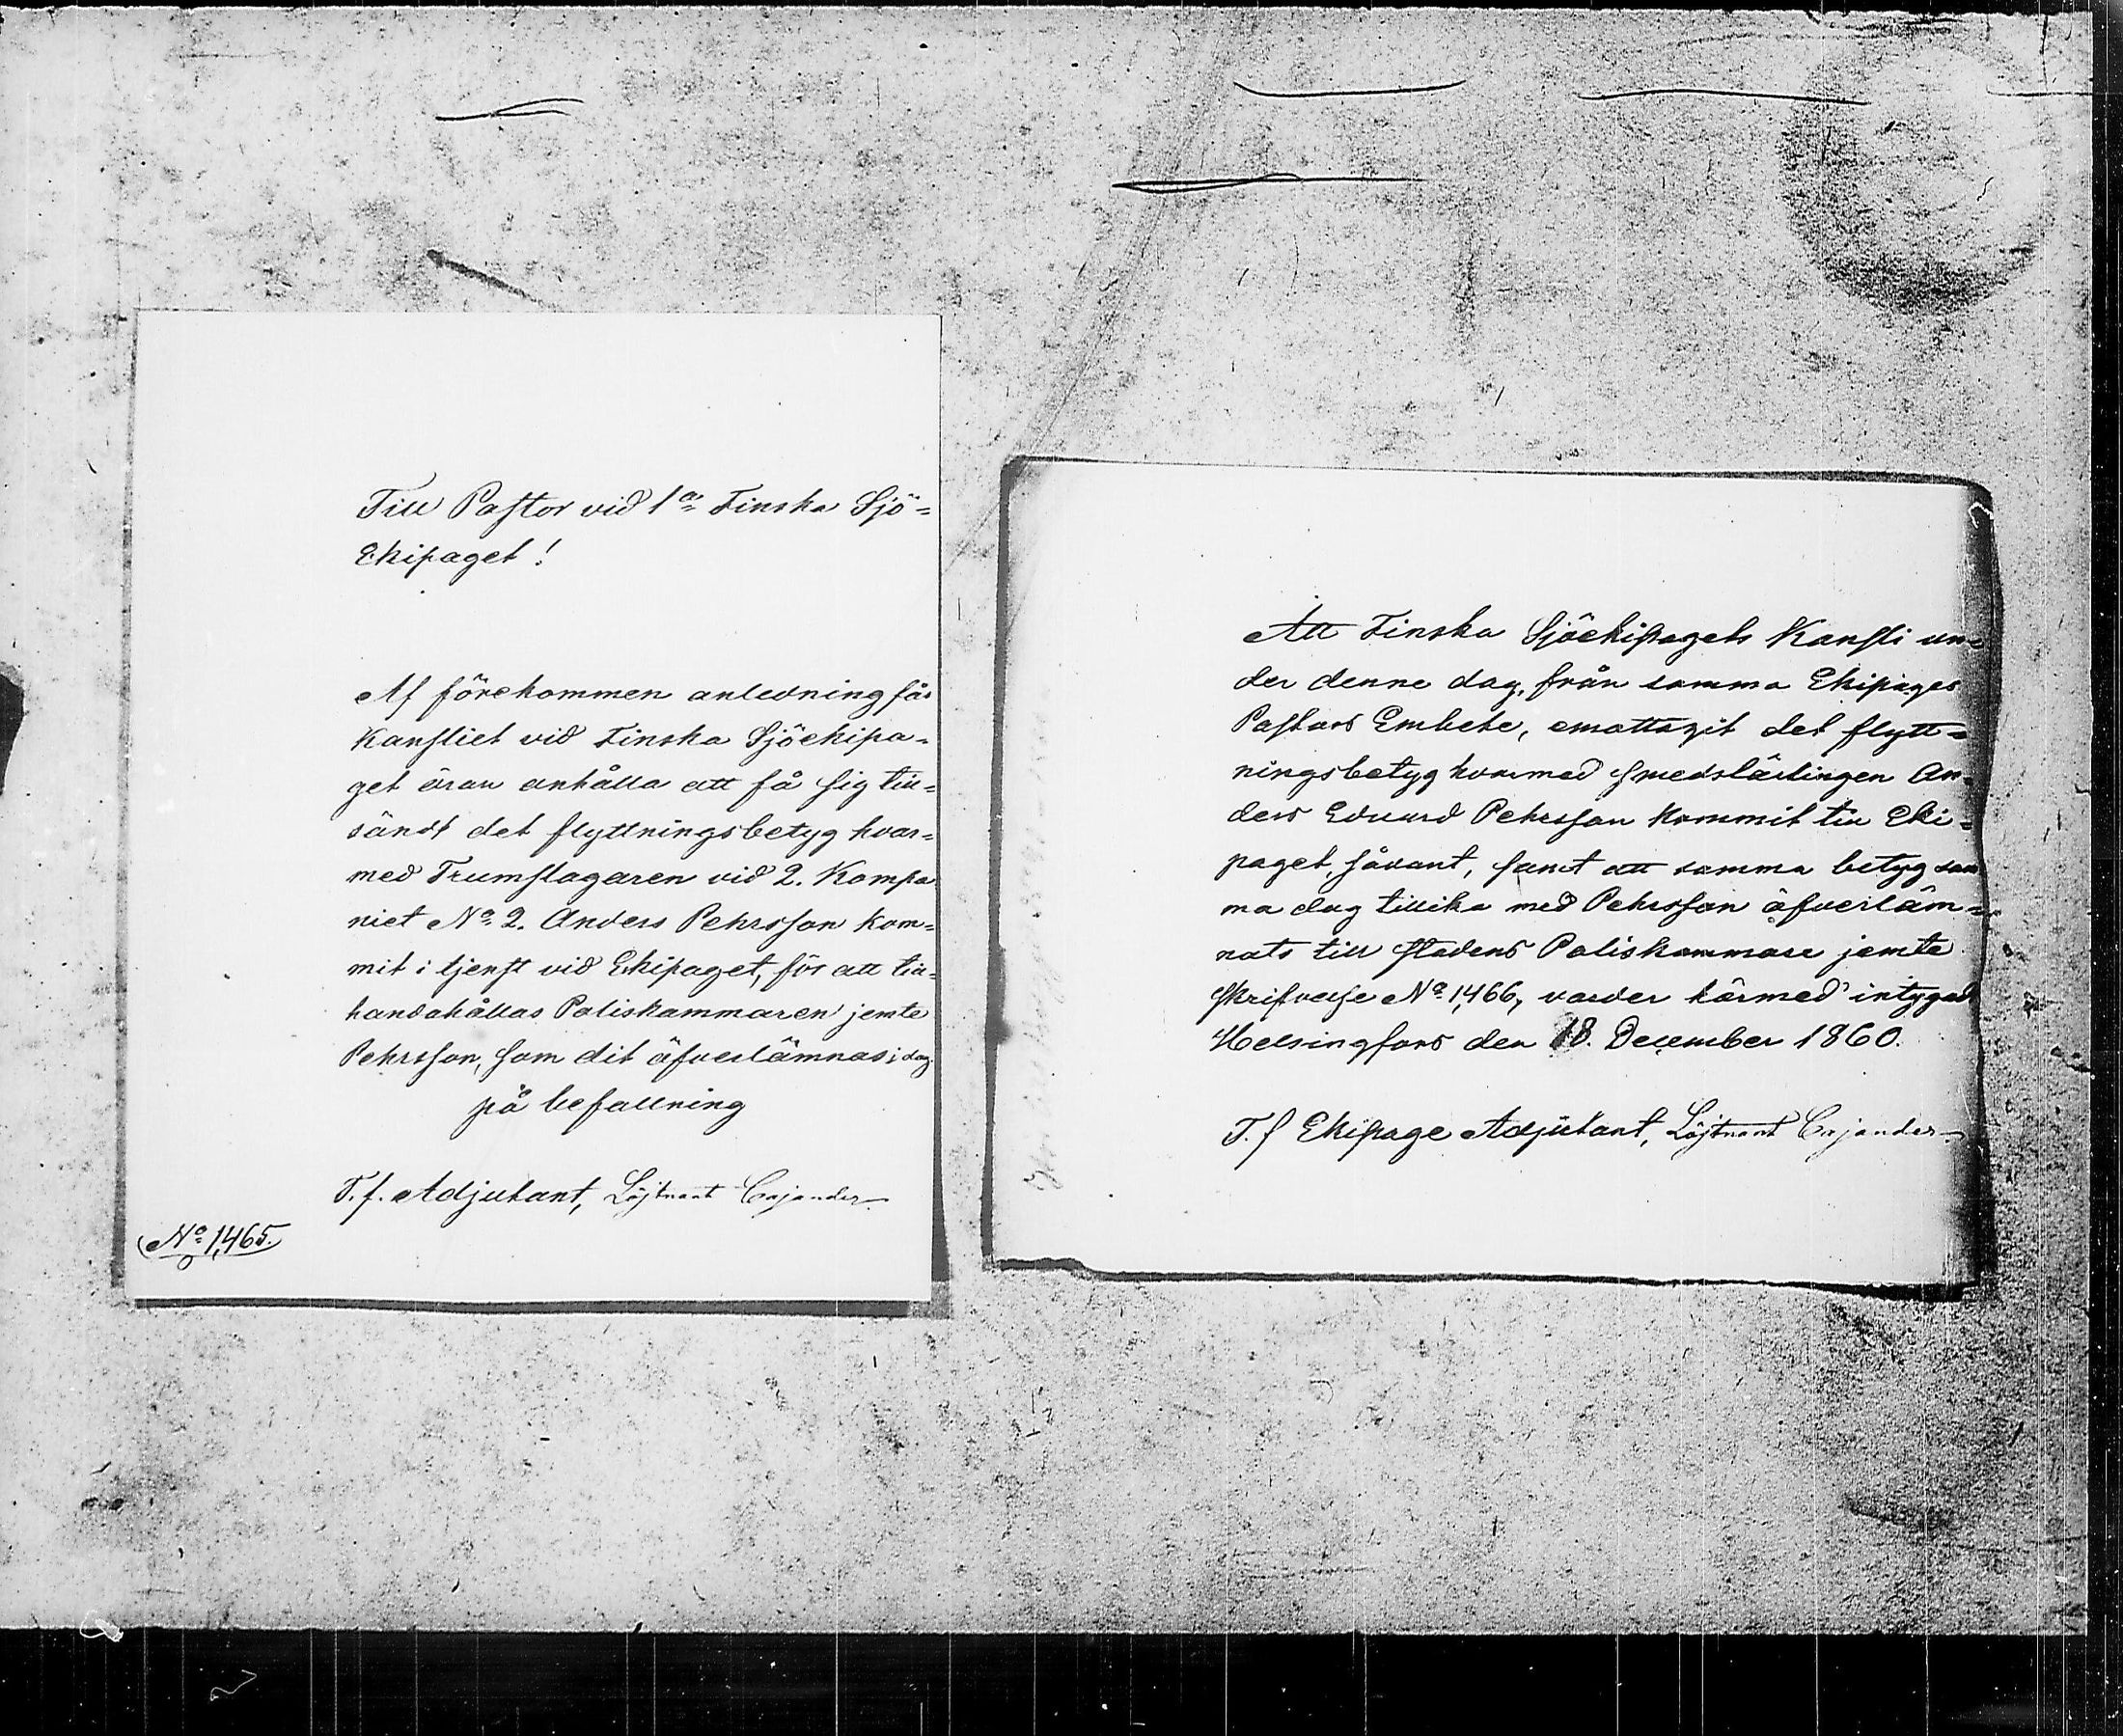 Till Pastor vid 1a Finska Sjö=
Ekipaget!
Af förekommen anledning får
Kansliet vid Finska Sjöekipa=
get äran anhålla att få sig till=
sändt det flyttningsbetyg hvar=
med Trumslagaren vid 2. Kompa
niet No 2. Anders Pehrsson kom=
mit i tjenst vid Ekipaget, för att till=
handahållas Poliskammaren jemte
Pehrsson, som dit öfverlämnas i dag
på befallning
T. f. Adjutant, Löjtnant Cajander
No 1,465.
Att Finska Sjöekipagets Kansli un=
der denne dag, från samma Ekipages
Pastors Embete, emottagit det flytt=
ningsbetyg hvarmed smedslärlingen An=
ders Eduard Pehrsson kommit till Eki=
paget, samt att samma betyg sam
ma dag tillika med Pehrsson öfverläm=
nats till stadens Poliskammare jemte
skrifvelse No 1,466, varder härmed intygadt
Helsingfors den 18. December 1860.
T. f Ekipage Adjutant, Löjtnant Cajander